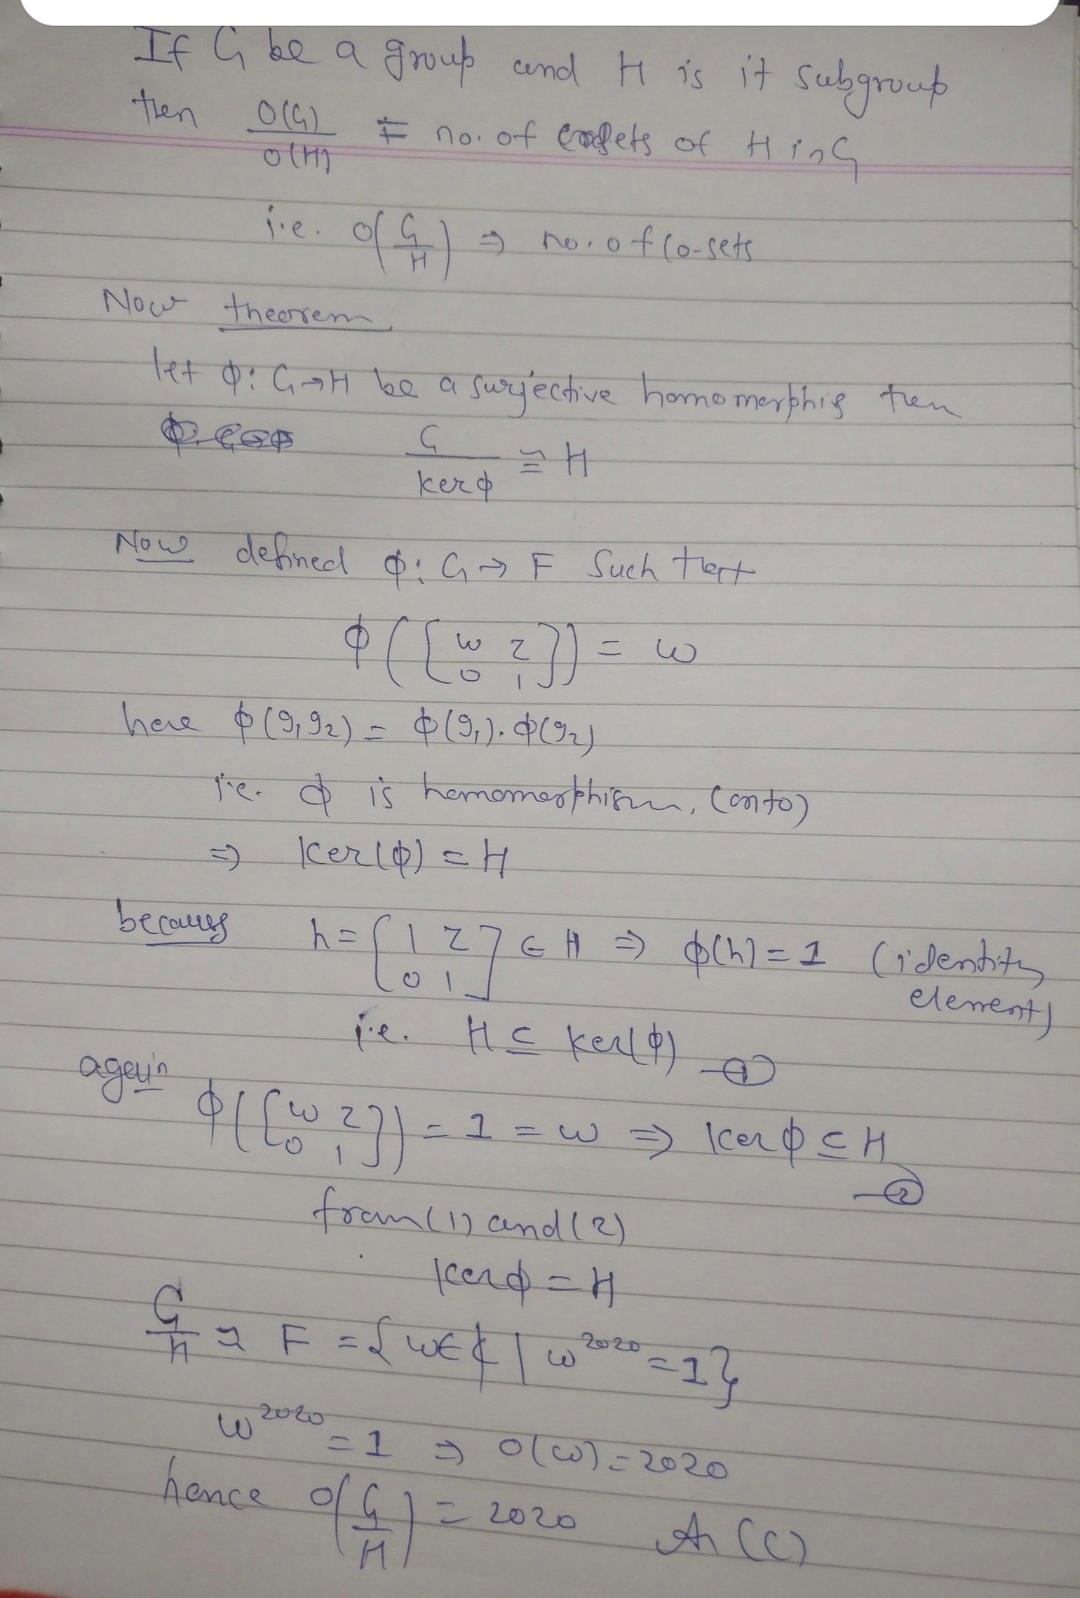 If G be a group and H is it subgroup
then O(G)/O(H) = no. of cosets of H in G
i.e. O(G/H) ⇒ no. of Co-sets
Now theorem
let φ: G→H be a surjective homomorphis then
G/kerφ ≅ H
Now defined φ: G→ F Such that
φ([w z; 0 1]) = w
here φ(g₁g₂) = φ(g₁).φ(g₂)
i.e. φ is homomorphism, (onto)
⇒ Ker(φ) = H
because h = [1 z; 0 1] ∈ H ⇒ φ(h) = 1 (identity
element)
i.e. H ⊆ Ker(φ) —①
again
φ([w z; 0 1]) = 1 = w ⇒ Kerφ ⊆ H
—②
from (1) and (2)
Kerφ = H
G/H ≅ F = {w∈ℂ | w²⁰²⁰ = 1}
w²⁰²⁰ = 1 ⇒ O(w) = 2020
hence O(G/H) = 2020 An (C)